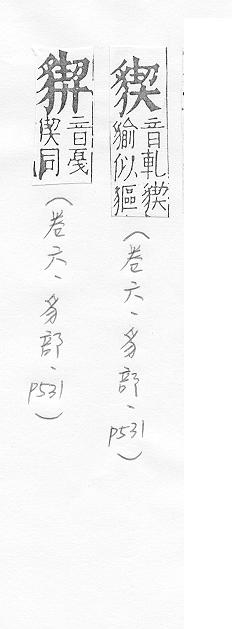 䝟
音軋䝟
貐似貙
（卷六、豸部、p531）
音戞
同
（卷六、豸部、p531）